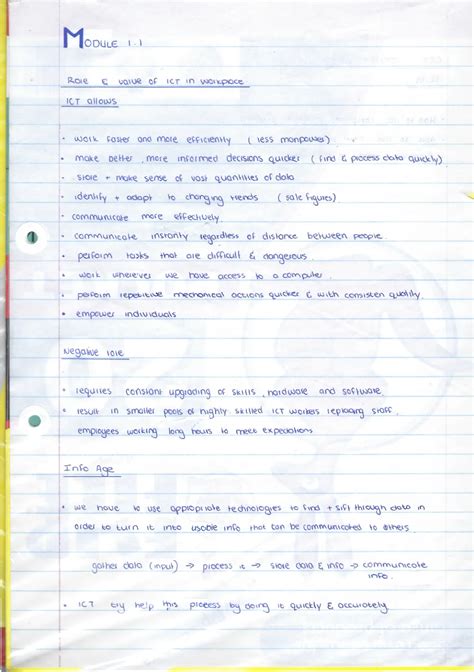 MODULE 1.1
Role & value of ICT in workplace
ICT allows
• work faster and more efficiently (less manpower)
• make better, more informed decisions quicker (find & process data quickly)
• store + make sense of vast quantities of data
• identify + adapt to changing trends (sale figures)
• communicate more effectively
• communicate instantly regardless of distance between people.
• perform tasks that are difficult & dangerous.
• work wherever we have access to a computer.
• perform repetitive mechanical actions quicker & with consisten quality.
• empower individuals
Negative role
• requires constant upgrading of skills, hardware and software.
• result in smaller pools of highly skilled ICT workers replacing staff.
employees working long hours to meet expectations
Info Age
• we have to use appropriate technologies to find + sift through data in
order to turn it into usable info that can be communicated to others.
gather data (input) → process it → store data & info → communicate
info.
• ICT help this process by doing it quickly & accurately.